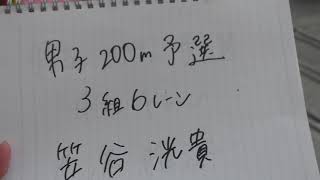 男子200m予選
3組6レーン
笠谷洸貴